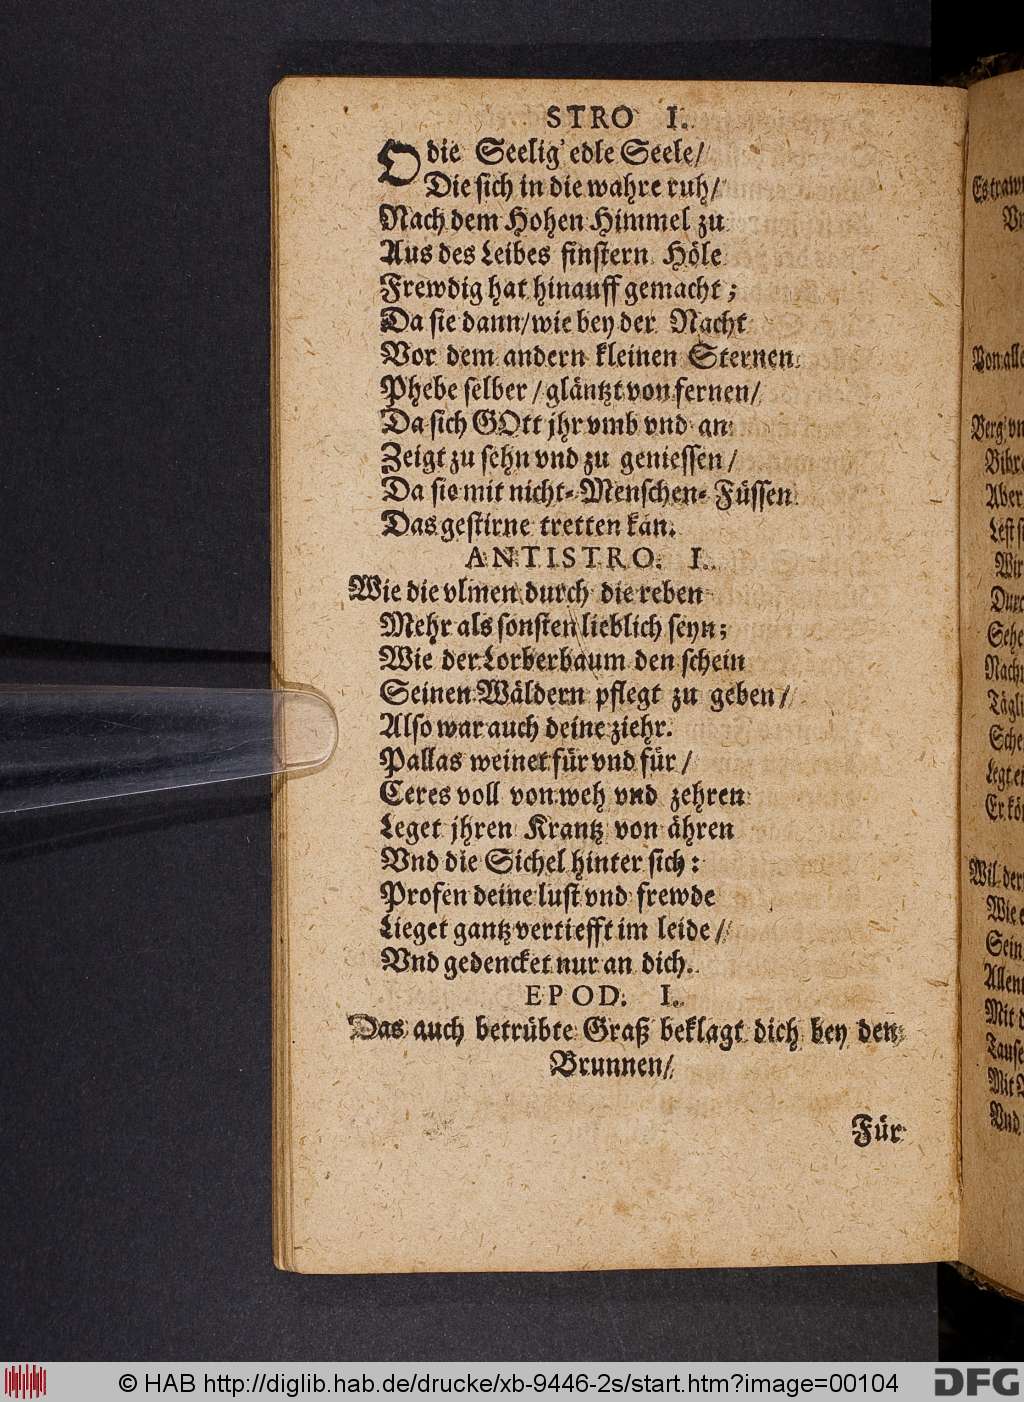 STRO I.
O die Seelig' edle Seele/
Die sich in die wahre ruh/
Nach dem Hohen Himmel zu
Aus des Leibes finstern Höle
Frewdig hat hinauff gemacht;
Da sie dann/wie bey der Nacht
Vor dem andern kleinen Sternen
Phebe selber/gläntzt von fernen/
Da sich GOtt jhr vmb vnd an
Zeigt zu sehn vnd zu geniessen/
Da sie mit nicht-Menschen-Füssen
Das gestirne tretten kan.
ANTISTRO. I.
Wie die vlmen durch die reben
Mehr als sonsten lieblich seyn;
Wie der Lorberbaum den schein
Seinen Wäldern pflegt zu geben/
Also war auch deine ziehr.
Pallas weinet für vnd für/
Ceres voll von weh vnd zehren
Leget jhren Krantz von ähren
Vnd die Sichel hinter sich:
Profen deine lust vnd frewde
Lieget gantz vertiefft im leide/
Vnd gedencket nur an dich.
EPOD. I.
Das auch betrübte Graß beklagt dich bey den
Brunnen/
Für
Von alle
Berg vn
Aber
Wir
Durc
Sehe
Nacht
Tägli
Sche
Legt ei
Er kön
Wil der
Wie e
Sein
Allen
Mit d
Tause
Mit
Vnd
© HAB http://diglib.hab.de/drucke/xb-9446-2s/start.htm?image=00104
DFG